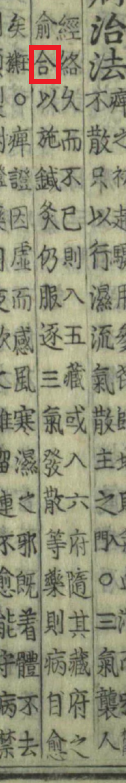 治法
不散只以行濕流氣散主之○三氣襲人
經絡久而不已則入五藏或入六府隨其藏府之
俞合以施鍼灸仍服逐三氣發散等藥則病自愈
矣○痺證因虛而感風寒濕之邪既着體不去